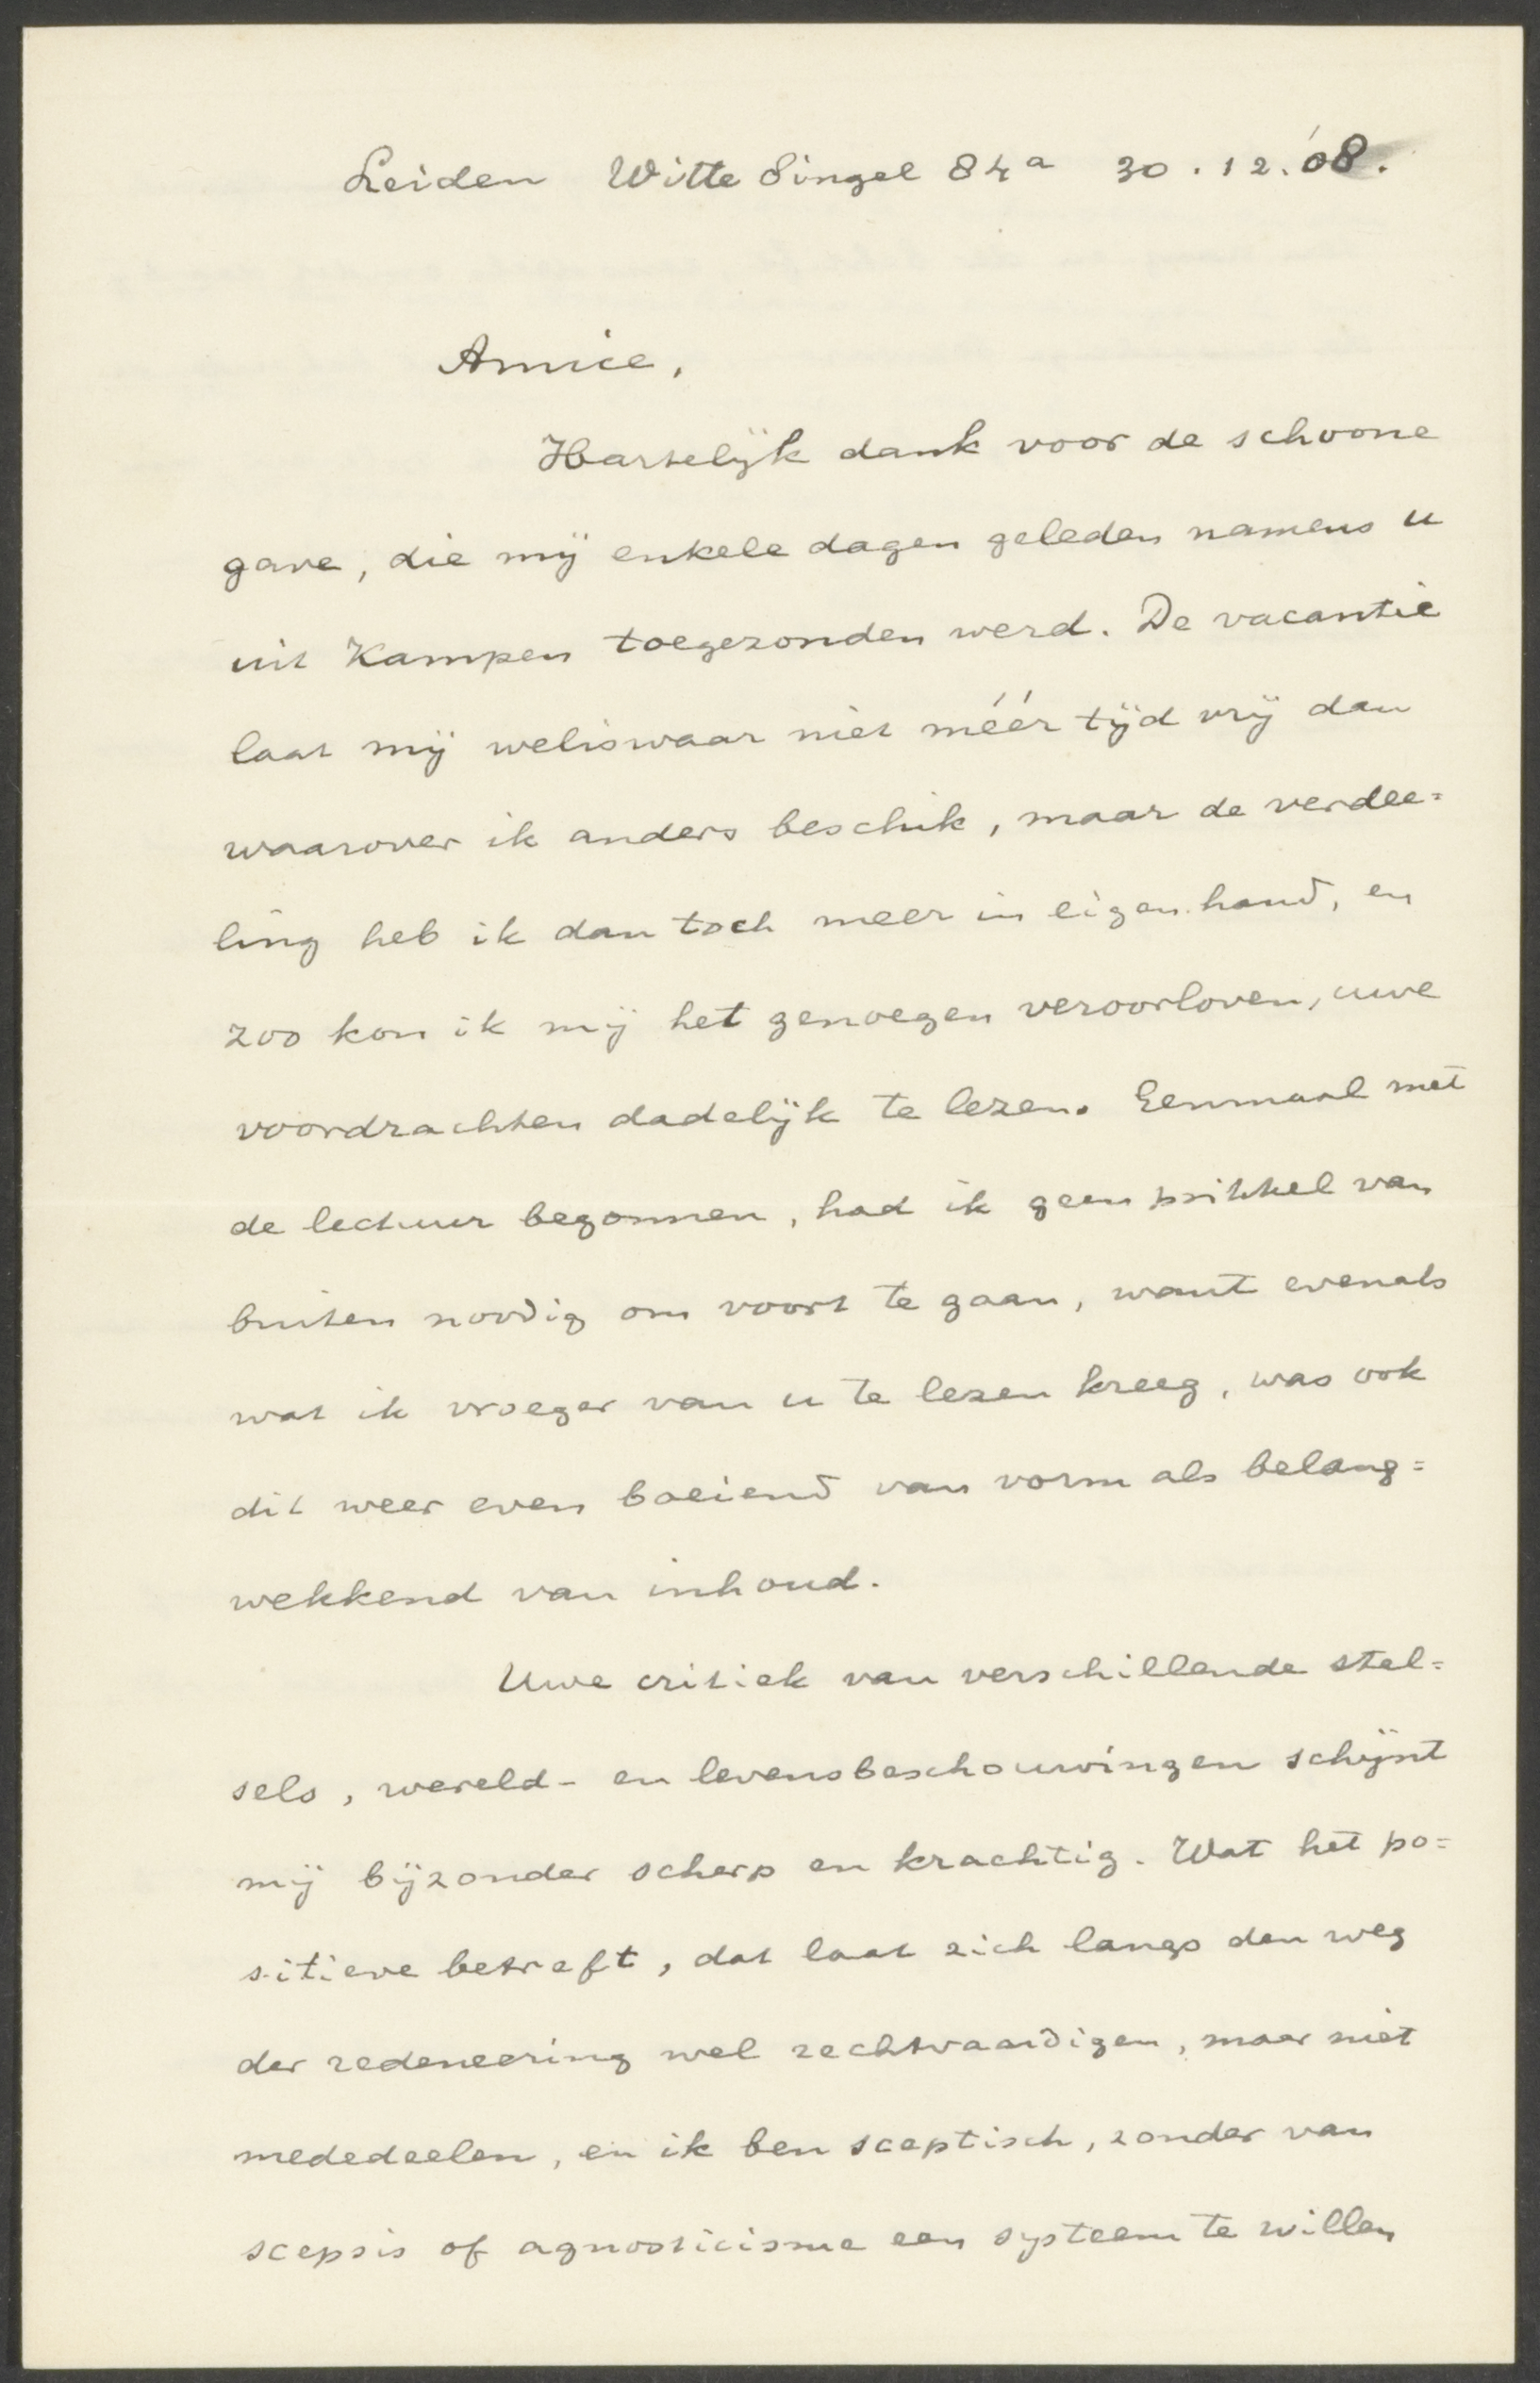 Leiden Witte Singel 84a 30.12.'08.
Amice,
Hartelijk dank voor de schoone
gave, die mij enkele dagen geleden namens u
uit Kampen toegezonden werd. De vacantie
laat mij weliswaar niet méér tijd vrij dan
waarover ik anders beschik, maar de verdee=
ling heb ik dan toch meer in eigen hand, en
zoo kon ik mij het genoegen veroorloven, uwe
voordrachten dadelijk te lezen. Eenmaal met
de lectuur begonnen, had ik geen prikkel van
buiten noodig om voort te gaan, want evenals
wat ik vroeger van u te lezen kreeg, was ook
dit weer even boeiend van vorm als belang=
wekkend van inhoud.
Uwe critiek van verschillende stel=
sels, wereld- en levensbeschouwingen schijnt
mij bijzonder scherp en krachtig. Wat het po=
sitieve betreft, dat laat zich langs den weg
der redeneering wel rechtvaardigen, maar niet
mededeelen, en ik ben sceptisch, zonder van
scepsis of agnosticisme een systeem te willen